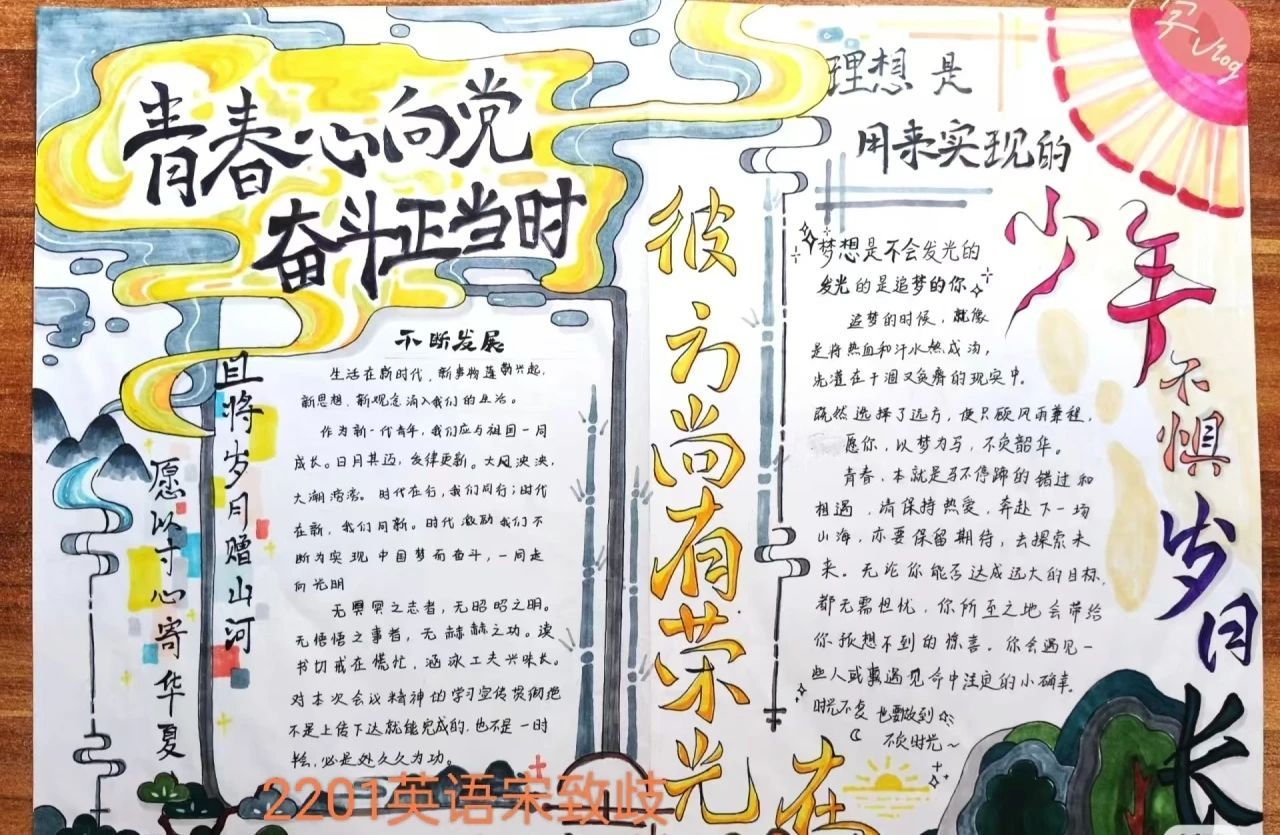 青春心向党
奋斗正当时
不断发展
生活在新时代，新事物蓬勃兴起，
新思想、新观念涌入我们的生活。
作为新一代青年，我们应与祖国一同
成长。日月其迈，岁律更新。大风泱泱，
大潮滂滂。时代在行，我们同行；时代
在新，我们同新。时代激励我们不
断为实现中国梦而奋斗，一同走
向光明
无冥冥之志者，无昭昭之明。
无惛惛之事者，无赫赫之功。读
书切戒在慌忙，涵泳工夫兴味长。
对本次会议精神的学习宣传贯彻绝
不是上传下达就能完成的，也不是一时
必是处久久为功。
且将岁月赠山河
愿以寸心寄华夏
彼方尚有荣光在
理想是
用来实现的
梦想是不会发光的
发光的是追梦的你
追梦的时候，就像
是将热血和汗水燃成汤，
浇灌在干涸又贫瘠的现实中。
既然选择了远方，便只顾风雨兼程，
愿你，以梦为马，不负韶华。
青春，本就是马不停蹄的错过和
相遇，请保持热爱，奔赴下一场
山海，亦要保留期待，去探索未
来。无论你能否达成远大的目标，
都无需担忧，你所至之地会带给
你预想不到的惊喜。你会遇见一
些人或事遇见命中注定的小确幸。
时光不复 也要做到
不负时光~
少年
不惧
岁月
长
字Vlog
2201英语宋致歧